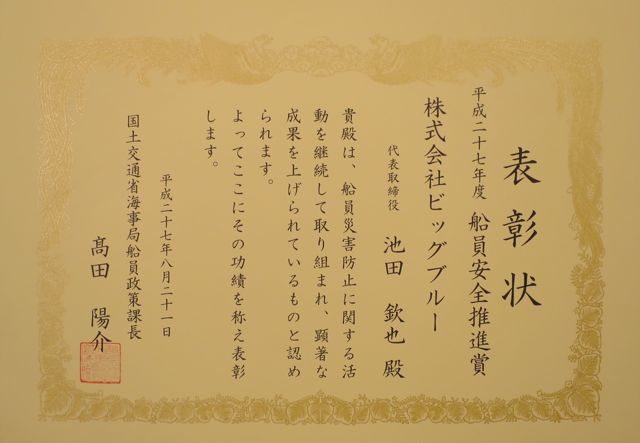 表彰状
平成二十七年度 船員安全推進賞
株式会社ビッグブルー
代表取締役 池田 欽也 殿
貴殿は、船員災害防止に関する活
動を継続して取り組まれ、顕著な
成果を上げられているものと認め
られます。
よってここにその功績を称え表彰
します。
平成二十七年八月二十一日
国土交通省海事局船員政策課長
髙田 陽介